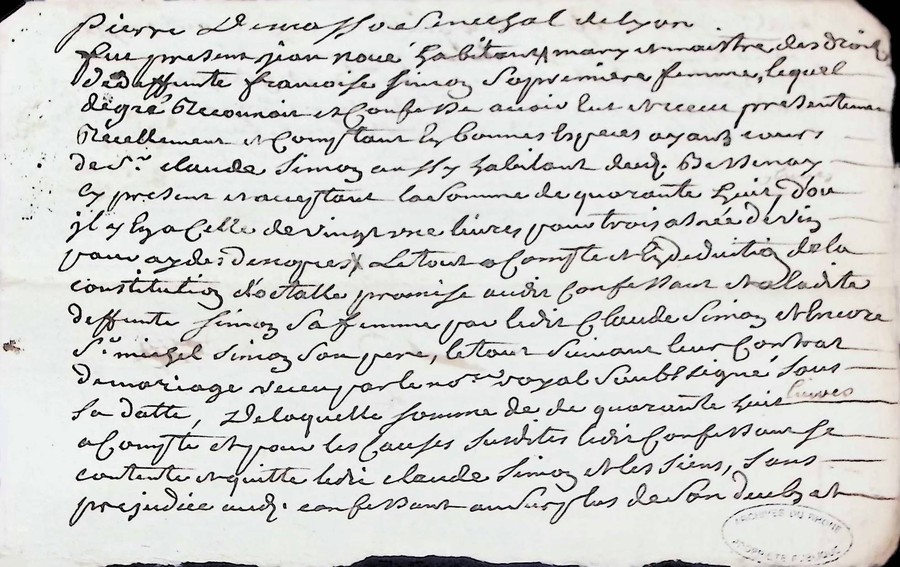 Pierre Demasso Senechal de lyon
fut present jean noué habitant mary et maistre des droits
de deffunte francoise simon sa premiere femme, lequel
de gré Reconnoit et Confesse avoir Eut et receu presentement
Reellement et Comptant En bonnes Especes ayant cours
de Sr. claude Simon aussy habitant dud. Bessenay
Cy present et acceptant la Somme de quarante huit, d'ou
jl y En a Celle de vingt une livres pour trois de vin
pour Le tout a Compte et En deduction de la
constitution dotalle promise audit Confessant et a ladite
deffunte simon sa femme par ledit Claude Simon et Encore
Sr. michel Simon Son pere, le tout Suivant leur Contrat
de mariage receu par le nore. royal Soubsigné Sous
Sa datte, De laquelle Somme de de quarante huit livres
a Compte et pour les Causes Susdites ledit Confessant Se
contente et quitte ledit claude Simon et les Siens, Sans
prejudice aud. confessant au Surplus de Son
ARCHIVES DU RHONE
PROPRIETE PUBLIQUE